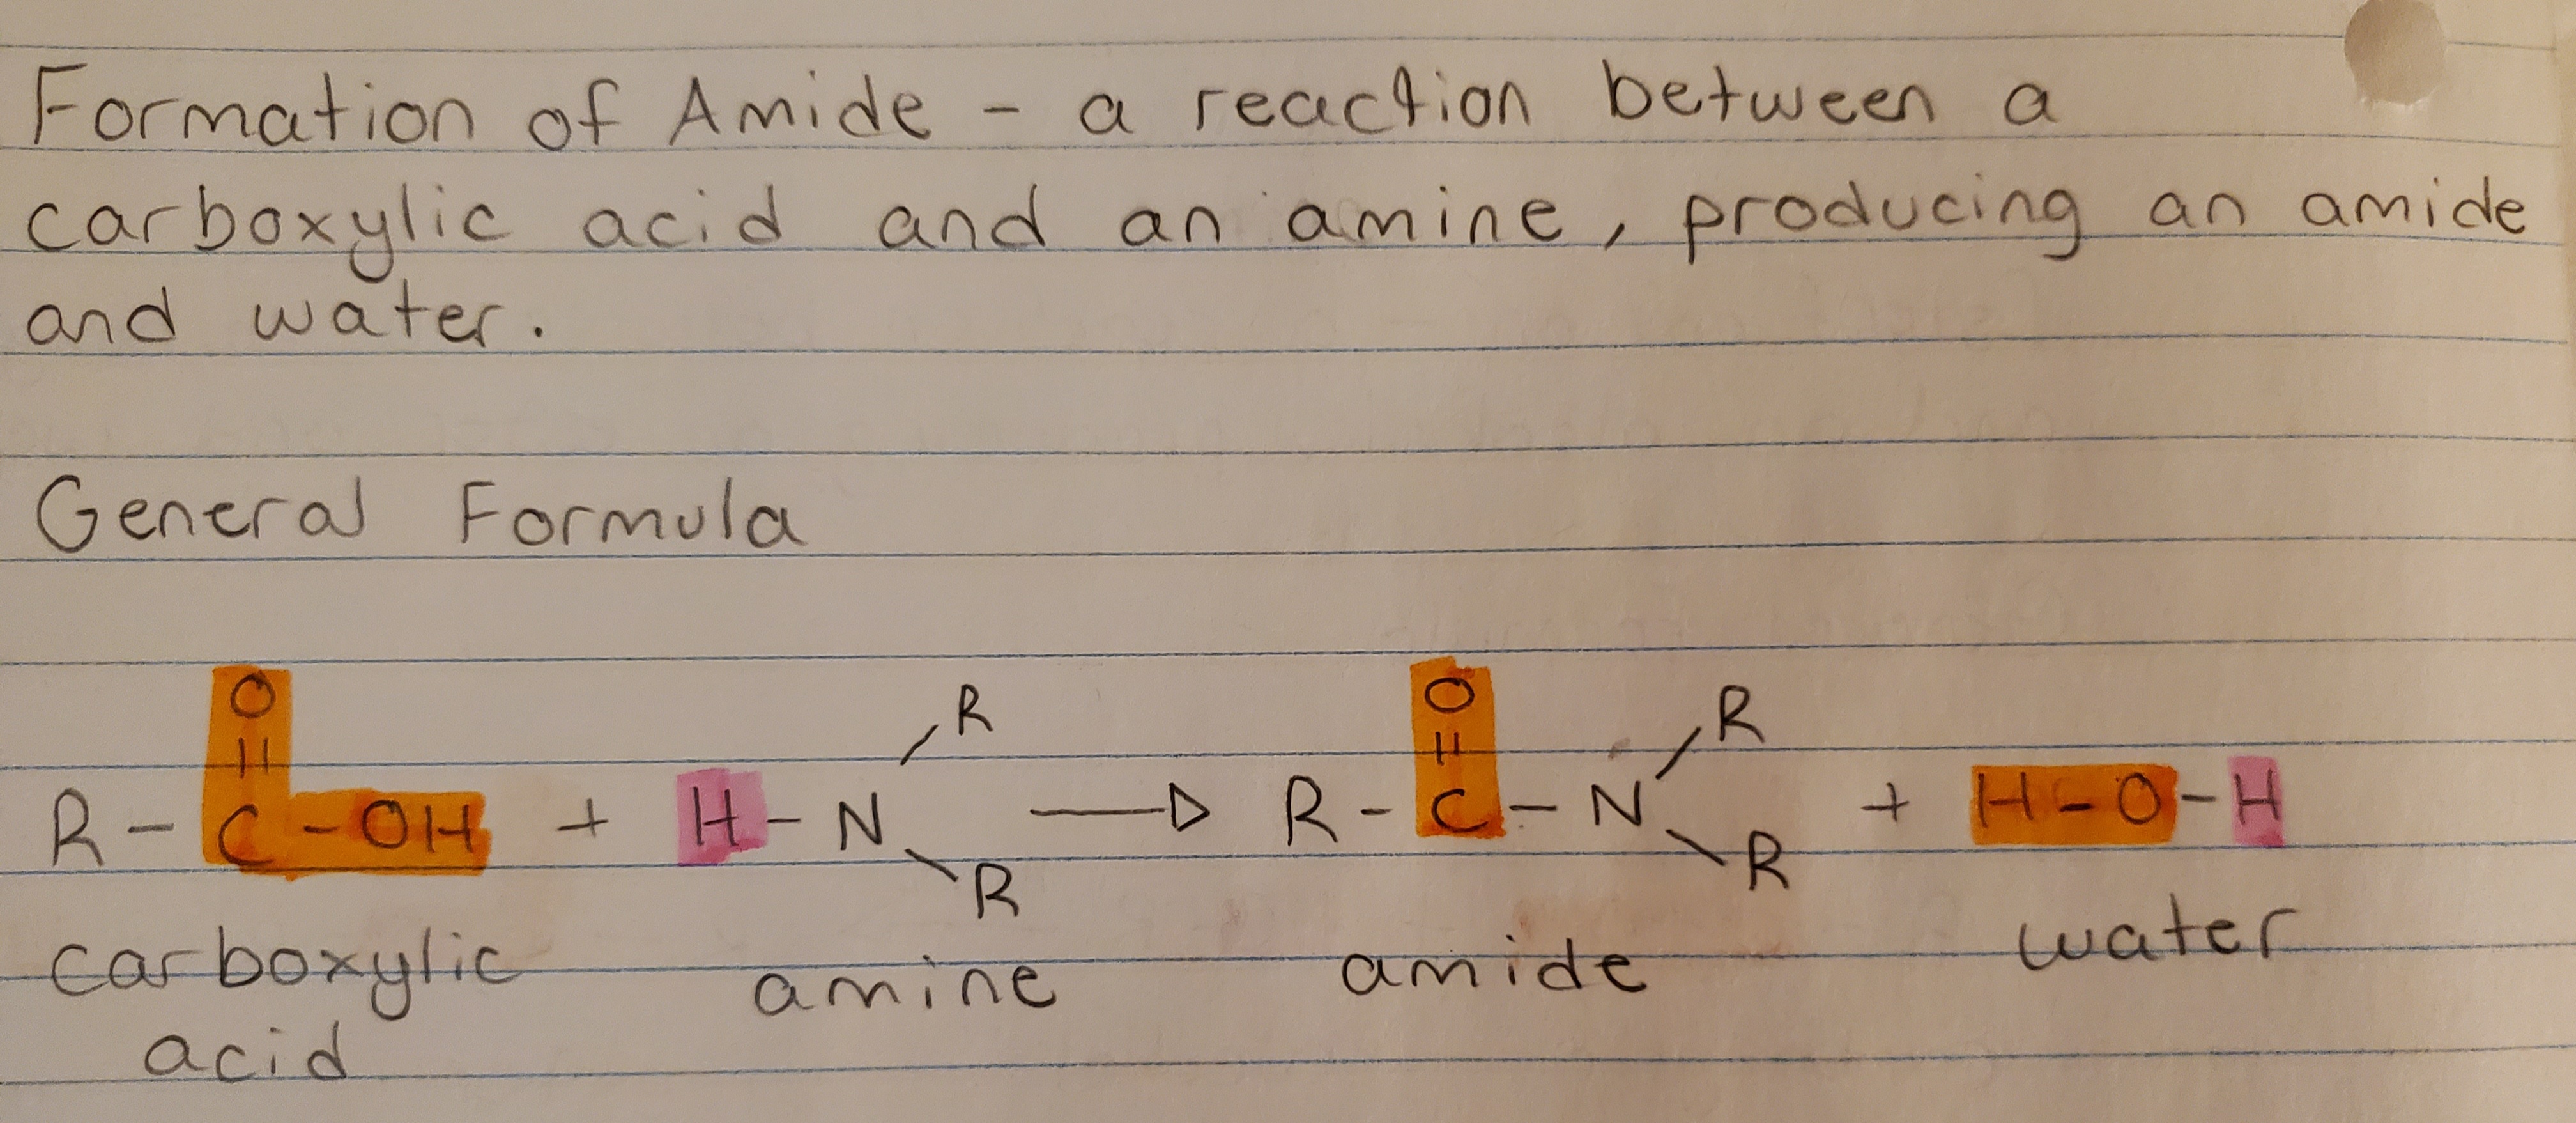 Formation of Amide - a reaction between a
carboxylic acid and an amine, producing an amide
and water.
General Formula
O R O R
|| ||
R - C - OH + H - N → R - C - N + H - O - H
R R
carboxylic amine amide water
acid